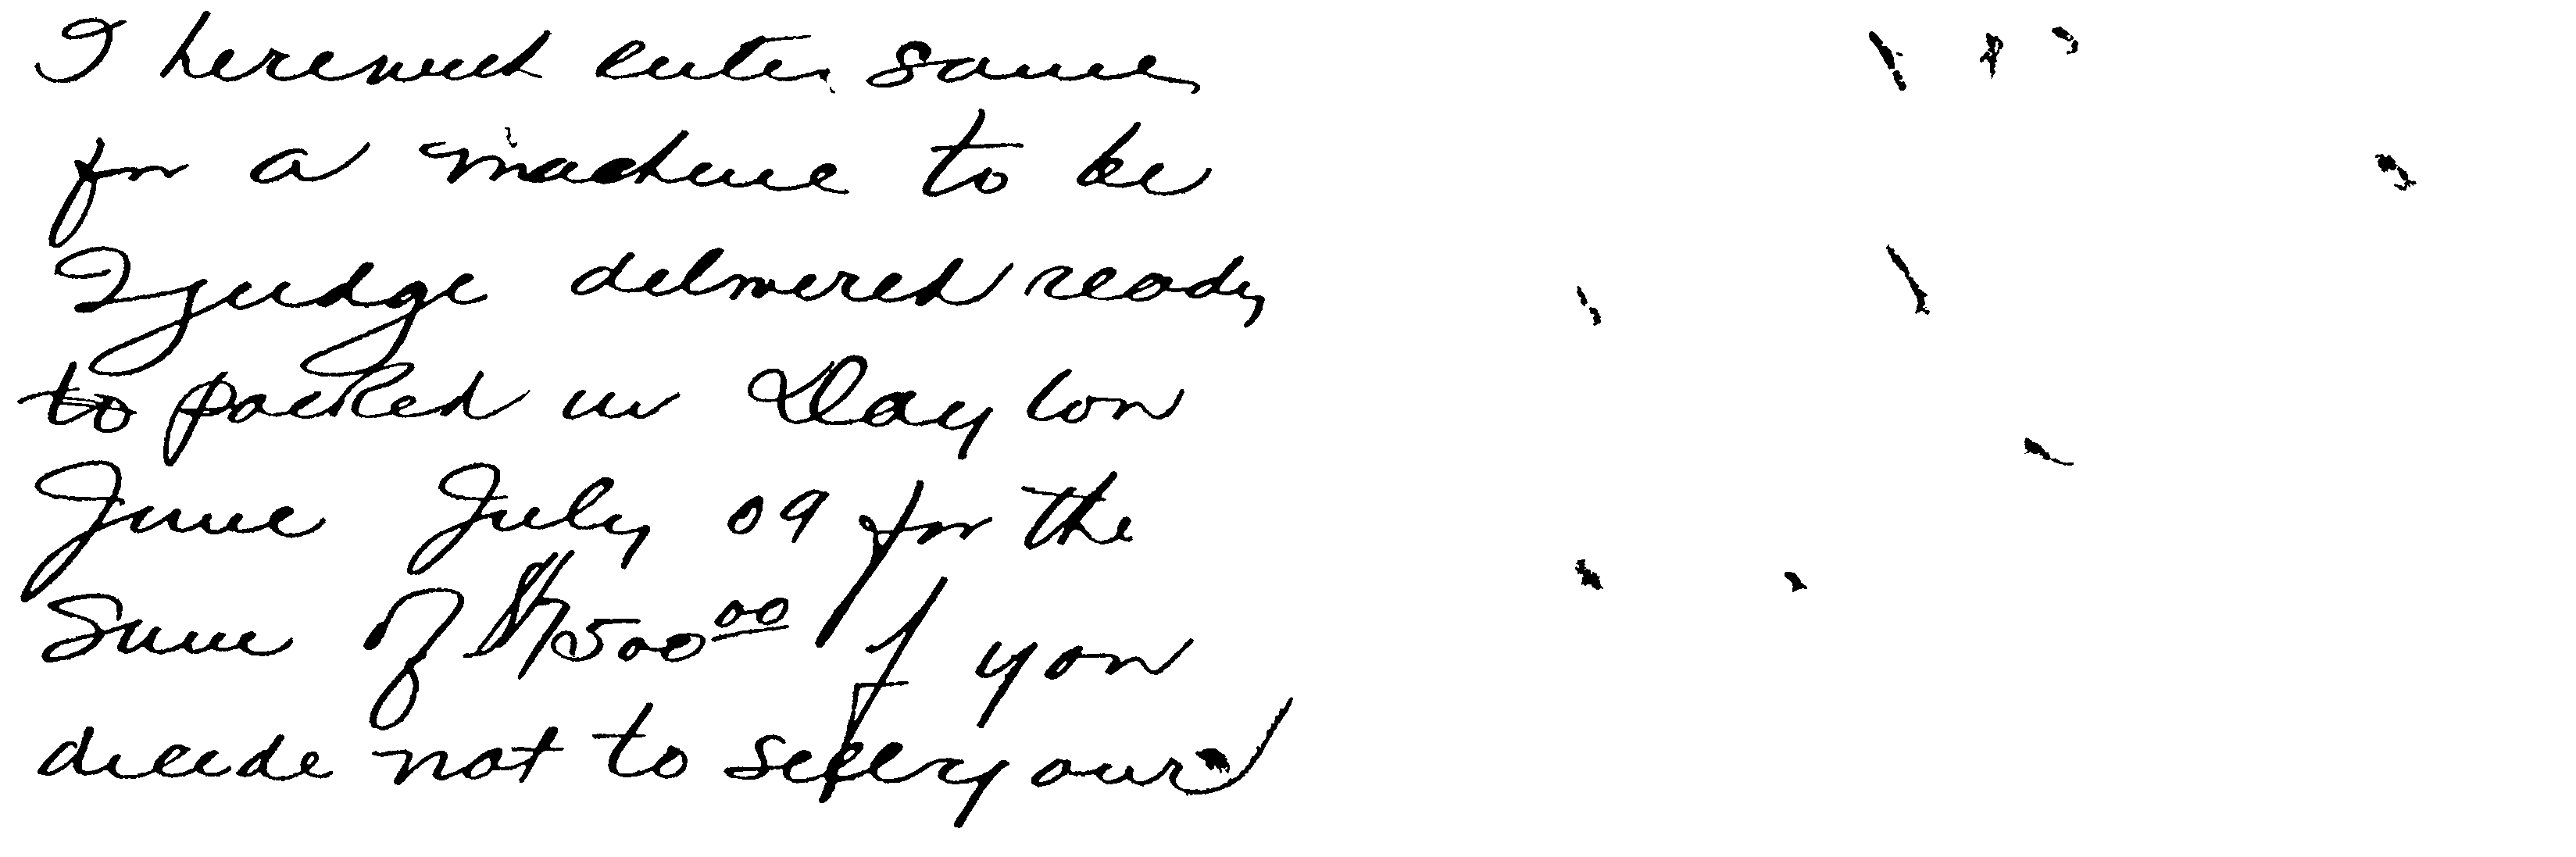 I herewith enter same
for a machine to be
I judge delivered ready
to packed in Dayton
June July 09 for the
Sum of $7500.00 if you
decide not to sell your